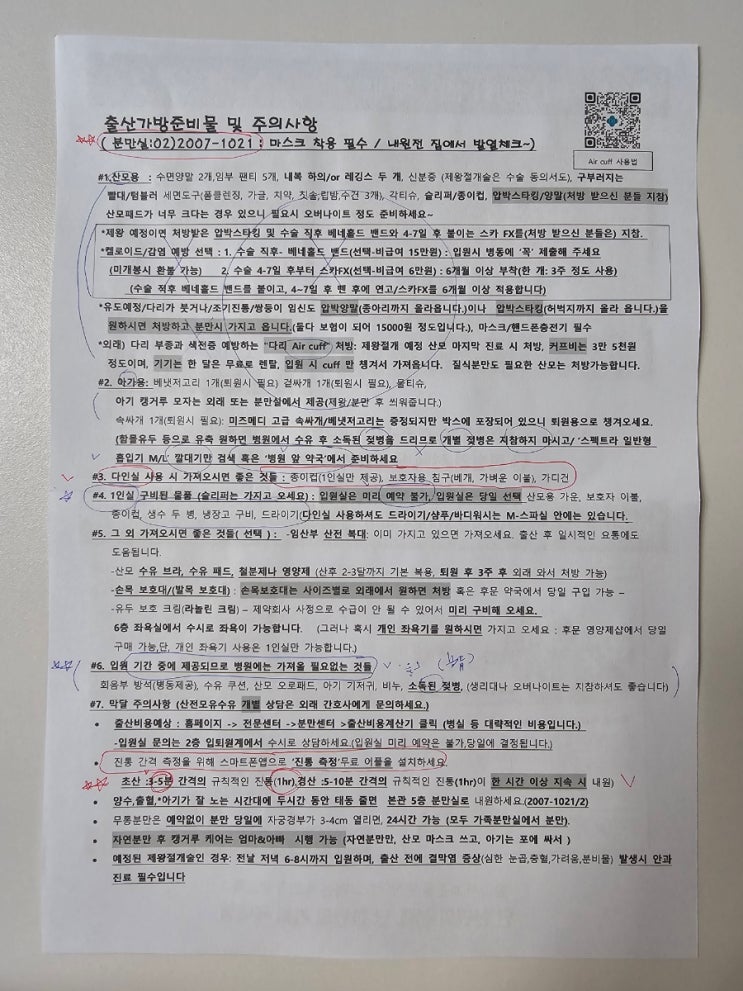 출산가방준비물 및 주의사항
( 분만실:02)2007-1021 : 마스크 착용 필수 / 내원전 집에서 발열체크~)
Air cuff 사용법
#1.산모용 : 수면양말 2개,임부 팬티 5개, 내복 하의/or 레깅스 두 개, 신분증 (제왕절개술은 수술 동의서도), 구부러지는
빨대/텀블러 세면도구(폼클렌징, 가글, 치약, 칫솔,립밤,수건 3개), 각티슈, 슬리퍼/종이컵, 압박스타킹/양말(처방 받으신 분들 지참)
산모패드가 너무 크다는 경우 있으니 필요시 오버나이트 정도 준비하세요~
*제왕 예정이면 처방받은 압박스타킹 및 수술 직후 베네홀드 밴드와 4-7일 후 붙이는 스카 FX를(처방 받으신 분들은) 지참.
*켈로이드/감염 예방 선택 : 1. 수술 직후- 베네홀드 밴드(선택-비급여 15만원) : 입원시 병동에 '꼭' 제출해 주세요
(미개봉시 환불 가능) 2. 수술 4-7일 후부터 스카FX(선택-비급여 6만원) : 6개월 이상 부착(한 개: 3주 정도 사용)
(수술 직후 베네홀드 밴드를 붙이고, 4~7일 후 뗀 후에 연고/스카FX를 6개월 이상 적용합니다)
*유도예정/다리가 붓거나/조기진통/쌍둥이 임신도 압박양말(종아리까지 올라옵니다.)이나 압박스타킹(허벅지까지 올라 옵니다.)을
원하시면 처방하고 분만시 가지고 옵니다.(둘다 보험이 되어 15000원 정도입니다.), 마스크/핸드폰충전기 필수
*외래) 다리 부종과 색전증 예방하는 "다리 Air cuff" 처방: 제왕절개 예정 산모 마지막 진료 시 처방, 커프비는 3만 5천원
정도이며, 기기는 한 달은 무료로 렌탈, 입원 시 cuff 만 챙겨서 가져옵니다. 질식분만도 필요한 산모는 처방가능합니다.
#2. 아기용: 베냇저고리 1개(퇴원시 필요) 겉싸개 1개(퇴원시 필요), 물티슈,
아기 캥거루 모자는 외래 또는 분만실에서 제공(제왕/분만 후 씌워줍니다.)
속싸개 1개(퇴원시 필요): 미즈메디 고급 속싸개/베냇저고리는 증정되지만 박스에 포장되어 있으니 퇴원용으로 챙겨오세요.
(함몰유두 등으로 유축 원하면 병원에서 수유 후 소독된 젖병을 드리므로 개별 젖병은 지참하지 마시고/ '스펙트라 일반형
흡입기 M/L' 깔대기만 검색 혹은 '병원 앞 약국'에서 준비하세요
#3. 다인실 사용 시 가져오시면 좋은 것들 : 종이컵(1인실만 제공), 보호자용 침구(베개, 가벼운 이불), 가디건
#4. 1인실 구비된 물품 (슬리퍼는 가지고 오세요) : 입원실은 미리 예약 불가, 입원실은 당일 선택 산모용 가운, 보호자 이불,
종이컵, 생수 두 병, 냉장고 구비, 드라이기(다인실 사용하셔도 드라이기/샴푸/바디워시는 M-스파실 안에는 있습니다.
#5. 그 외 가져오시면 좋은 것들( 선택 ) : -임산부 산전 복대: 이미 가지고 있으면 가져오세요. 출산 후 일시적인 요통에도
도움됩니다.
-산모 수유 브라, 수유 패드, 철분제나 영양제 (산후 2-3달까지 기본 복용, 퇴원 후 3주 후 외래 와서 처방 가능)
-손목 보호대/(발목 보호대) : 손목보호대는 사이즈별로 외래에서 원하면 처방 혹은 후문 약국에서 당일 구입 가능 –
-유두 보호 크림(라놀린 크림) – 제약회사 사정으로 수급이 안 될 수 있어서 미리 구비해 오세요.
6층 좌욕실에서 수시로 좌욕이 가능합니다. (그러나 혹시 개인 좌욕기를 원하시면 가지고 오세요 : 후문 영양제샵에서 당일
구매 가능,단, 개인 좌욕기 사용은 1인실만 가능합니다.)
#6. 입원 기간 중에 제공되므로 병원에는 가져올 필요없는 것들
회음부 방석(병동제공), 수유 쿠션, 산모 오로패드, 아기 기저귀, 비누, 소독된 젖병, (생리대나 오버나이트는 지참하셔도 좋습니다)
#7. 막달 주의사항 (산전모유수유 개별 상담은 외래 간호사에게 문의하세요.)
• 출산비용예상 : 홈페이지 -> 전문센터 ->분만센터 >출산비용계산기 클릭 (병실 등 대략적인 비용입니다.)
-입원실 문의는 2층 입퇴원계에서 수시로 상담하세요.(입원실 미리 예약은 불가,당일에 결정됩니다.)
• 진통 간격 측정을 위해 스마트폰앱으로 '진통 측정'무료 어플을 설치하세요
• 초산 :3-5분 간격의 규칙적인 진통(1hr),경산 :5-10분 간격의 규칙적인 진통(1hr)이 한 시간 이상 지속 시 내원)
• 양수,출혈,*아기가 잘 노는 시간대에 두시간 동안 태동 줄면 본관 5층 분만실로 내원하세요.(2007-1021/2)
• 무통분만은 예약없이 분만 당일에 자궁경부가 3-4cm 열리면, 24시간 가능 (모두 가족분만실에서 분만).
• 자연분만 후 캥거루 케어는 엄마&아빠 시행 가능 (자연분만만, 산모 마스크 쓰고, 아기는 포에 싸서 )
• 예정된 제왕절개술인 경우: 전날 저녁 6-8시까지 입원하며, 출산 전에 결막염 증상(심한 눈곱,충혈,가려움,분비물) 발생시 안과
진료 필수입니다